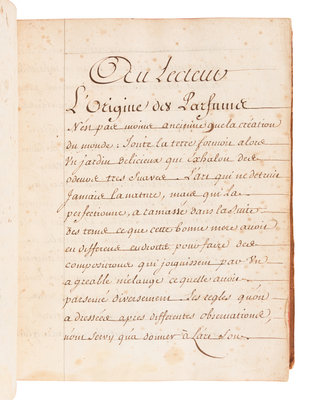 Au Lecteur
L'Origine des Parfums
N'est pas moins ancienne que la création
du monde. Toute la terre formoit alors
Un jardin delicieux qui Exhaloit des
odeurs tres suaves. L'art qui ne detruit
Jamais la nature, mais qui la
perfectionne, a ramassé dans la suite
des tems ce que cette bonne mere avoit
en differens endroits pour faire des
compositions qui joignissent par Un
agreable mélange ce qu'elle avoit
parsemé diversement. Les regles qu'on
a dressées apres differentes observations,
n'ont servy qu'a donner à L'art Son